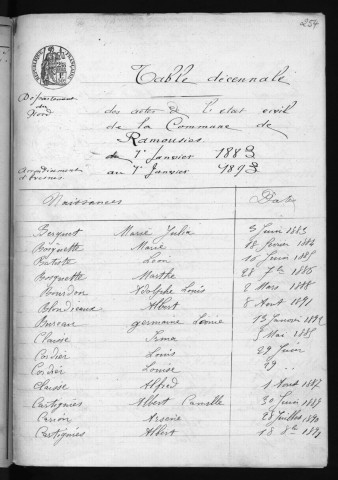 254
RÉPUBLIQUE FRANÇAISE
Table décennale
Département
du
Nord
des actes de l'état civil
de la Commune de
Ramousies
du 1er Janvier 1883
Arrondissement
d'Avesnes
au 1er Janvier 1893
Naissances Dates
Berquet Marie Julia 5 Juin 1883
Marie 18 février 1884
Batiste Léon 16 Juin 1885
Marthe 28 7bre 1886
Bourdon Adolphe Louis 2 Mars 1888
Blondieaux Albert 8 Aout 1891
Bureau germaine 13 Janvier 1892
Clausse Irma 5 Mai 1885
Cordier Louis 29 Juin
Cordier Louise 29
Clausse Alfred 1 Aout 1887
Cartignies Albert Camille 30 Juin 1889
Arsène 28 Juillet 1890
Cartignies Albert 18 8bre 1891